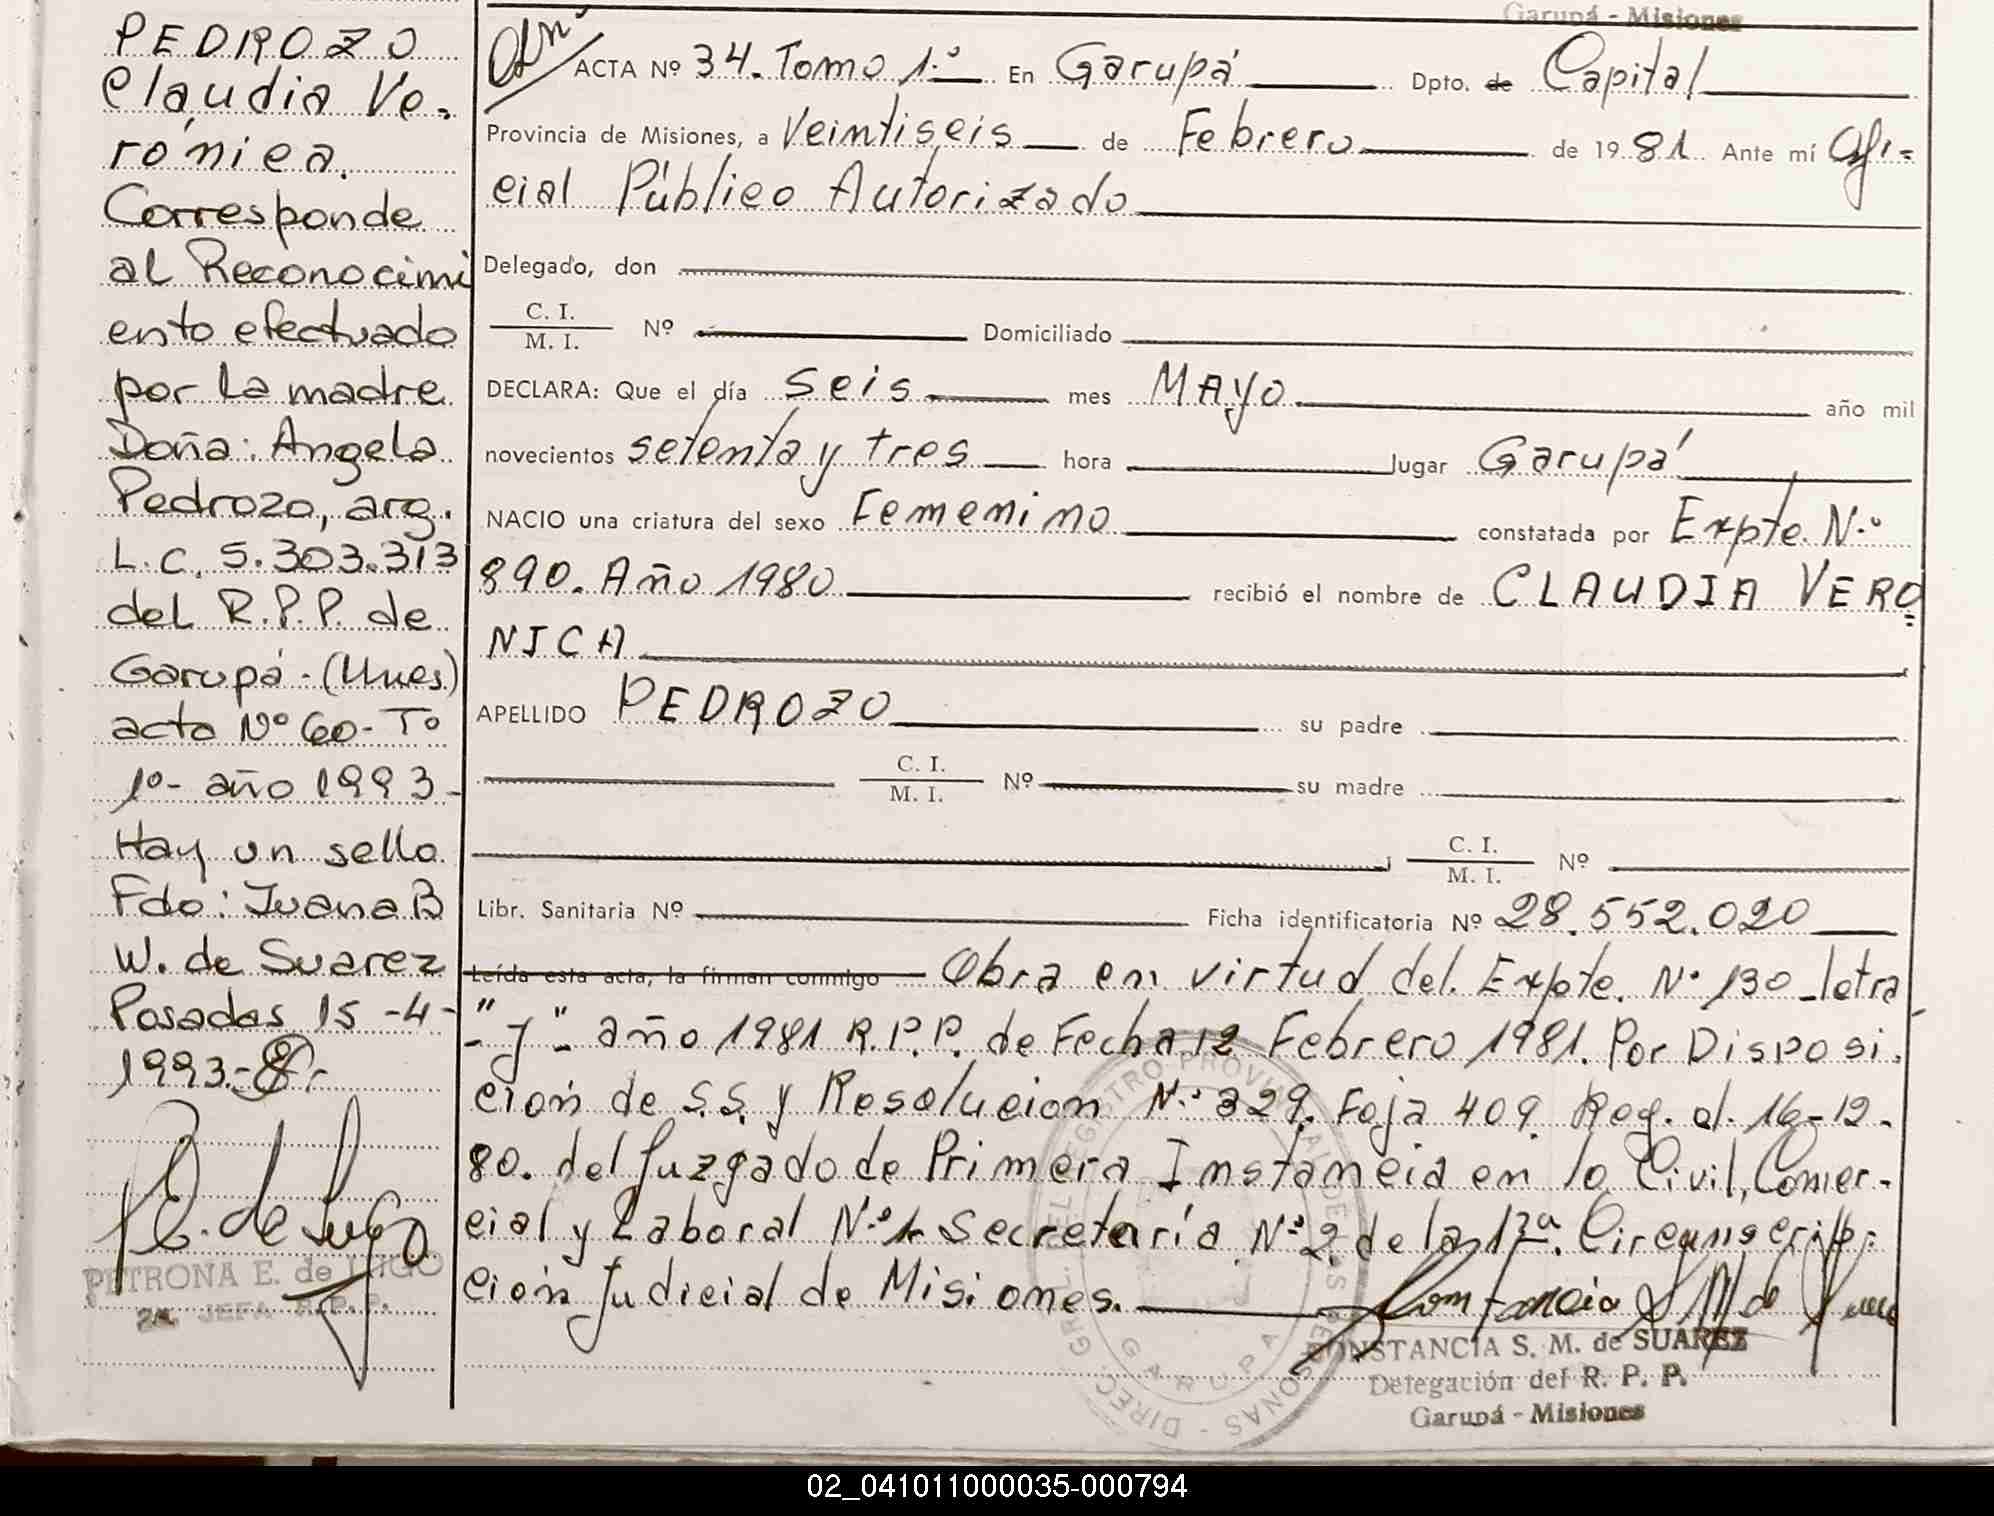 Garupá - Misiones
PEDROZO
Claudia Ve-
rónica.
Corresponde
al Reconocimi
ento efectuado
por la madre
Doña: Angela
Pedrozo, arg.
L.C. 5.303.313
del R.P.P. de
Garupá - (Mnes)
acta Nº 60 - Tº
1º - año 1993 -
Hay un sello
Fdo: Juana B
W. de Suarez
Posadas 15 - 4 -
1993.-
PETRONA E. de LUGO
JEFA R. P. P.
ACTA Nº 34. Tomo 1º En Garupá Dpto. de Capital
Provincia de Misiones, a Veintiseis de Febrero de 1981 Ante mí Ofi-
cial Público Autorizado
Delegado, don
C. I.
M. I. Nº Domiciliado
DECLARA: Que el día Seis mes MAyo año mil
novecientos setenta y tres hora lugar Garupá
NACIO una criatura del sexo Femenino constatada por Expte. Nº
890. Año 1980 recibió el nombre de CLAUDIA VERO
NICA
APELLIDO PEDROZO su padre
C. I.
M. I. Nº su madre
C. I.
M. I. Nº
Libr. Sanitaria Nº Ficha identificatoria Nº 28.552.020
Leída esta acta, la firman conmigo Obra en virtud del. Expte. Nº 130 - letra
"J" año 1981 R.P.P. de Fecha 12 Febrero 1981. Por Disposi.
ción de S.S. y Resolucion Nº 329. Foja 409. Reg. al. 16-12-
80. del Juzgado de Primera Instancia en lo Civil, Comer-
cial y Laboral Nº 1 Secretaría Nº 2 de la 1ra. Circunscrip-
ción Judicial de Misiones.
DIREC. GRAL. DEL REGISTRO PROVINCIAL DE LAS PERSONAS - GARUPA
CONSTANCIA S. M. de SUAREZ
Delegación del R. P. P.
Garupá - Misiones
02_041011000035-000794